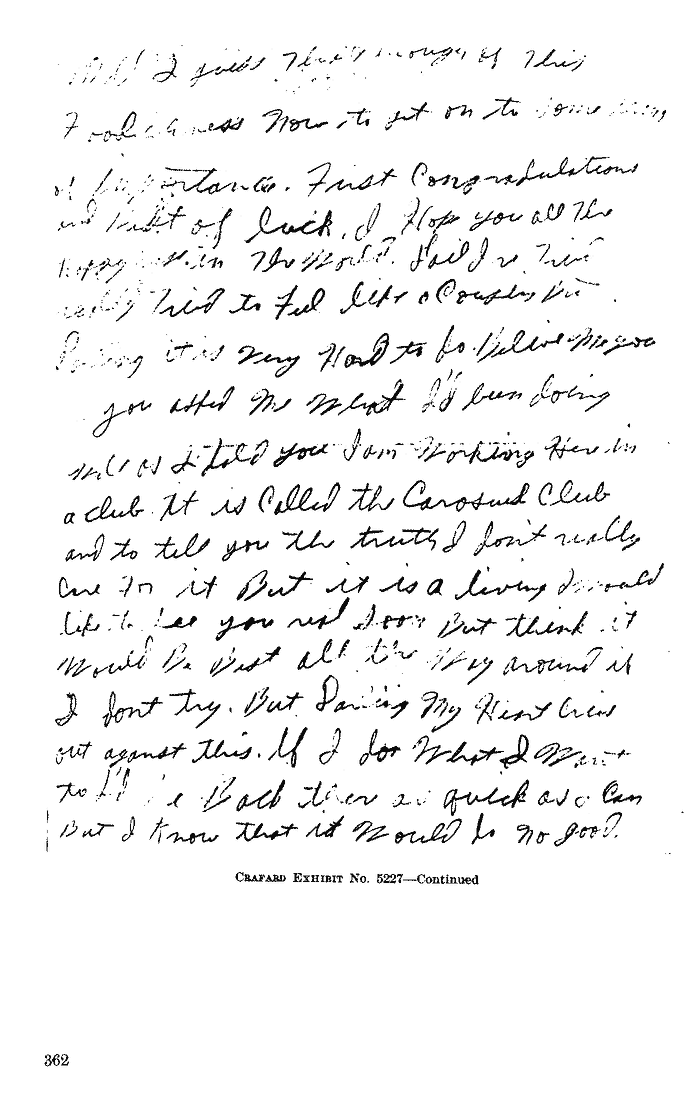 Well I guess that's enough of this
Foolishness Now to get on to some
of Importance. First Congradulations
and Best of luck, I Hope you all The
in The World. Gail I've
Tried to Feel like a
Darling it is very Hard to do. Believe Me you
you asked Me What I'd been doing
well as I told you I am Working Here in
a club. It is Called the Carosuel Club
and to tell you the truth I don't really
Care For it But it is a living I would
like to see you real soon But think it
Would Be Best all the Way around if
I dont try. But Darling My Heart Cries
out against this. If I do What I Want
to I'd be Back ther as quick as Can
But I Know that it Would do no good.
CRAFARD EXHIBIT NO. 5227—Continued
362